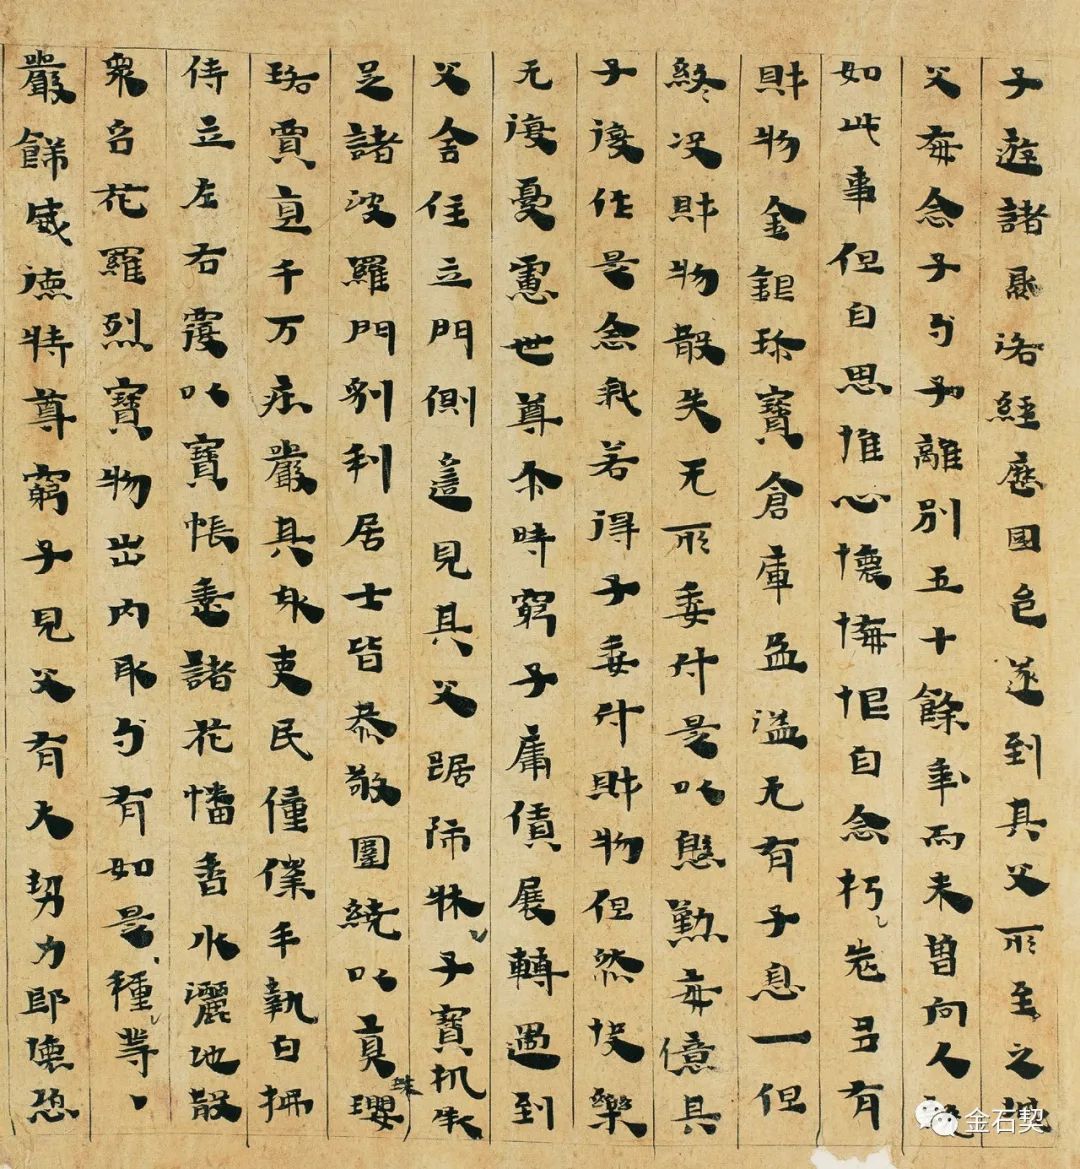 子遊諸聚洛經歷國邑遂到其父所至之城
父每念子与子離別五十餘年而未曾向人說
如此事但自思惟心懷悔恨自念朽老多有
財物金銀珍寶倉庫盈溢无有子息一但
終没財物散失无所委付是以慇懃每憶其
子復作是念我若得子委付財物但然快樂
无復憂慮世尊尒時窮子庸債展轉遇到
父舍住立門側遥見其父踞師牀子寶机承
足諸波羅門刹利居士皆恭敬圍繞以真珠瓔
珞賈直千万庄嚴其身吏民僮僕手執白拂
侍立左右覆以寶帳垂諸花幡香水灑地散
衆名花羅烈寶物出内取与有如是種等
嚴餝威德特尊窮子見父有大势力即懷恐
金石契